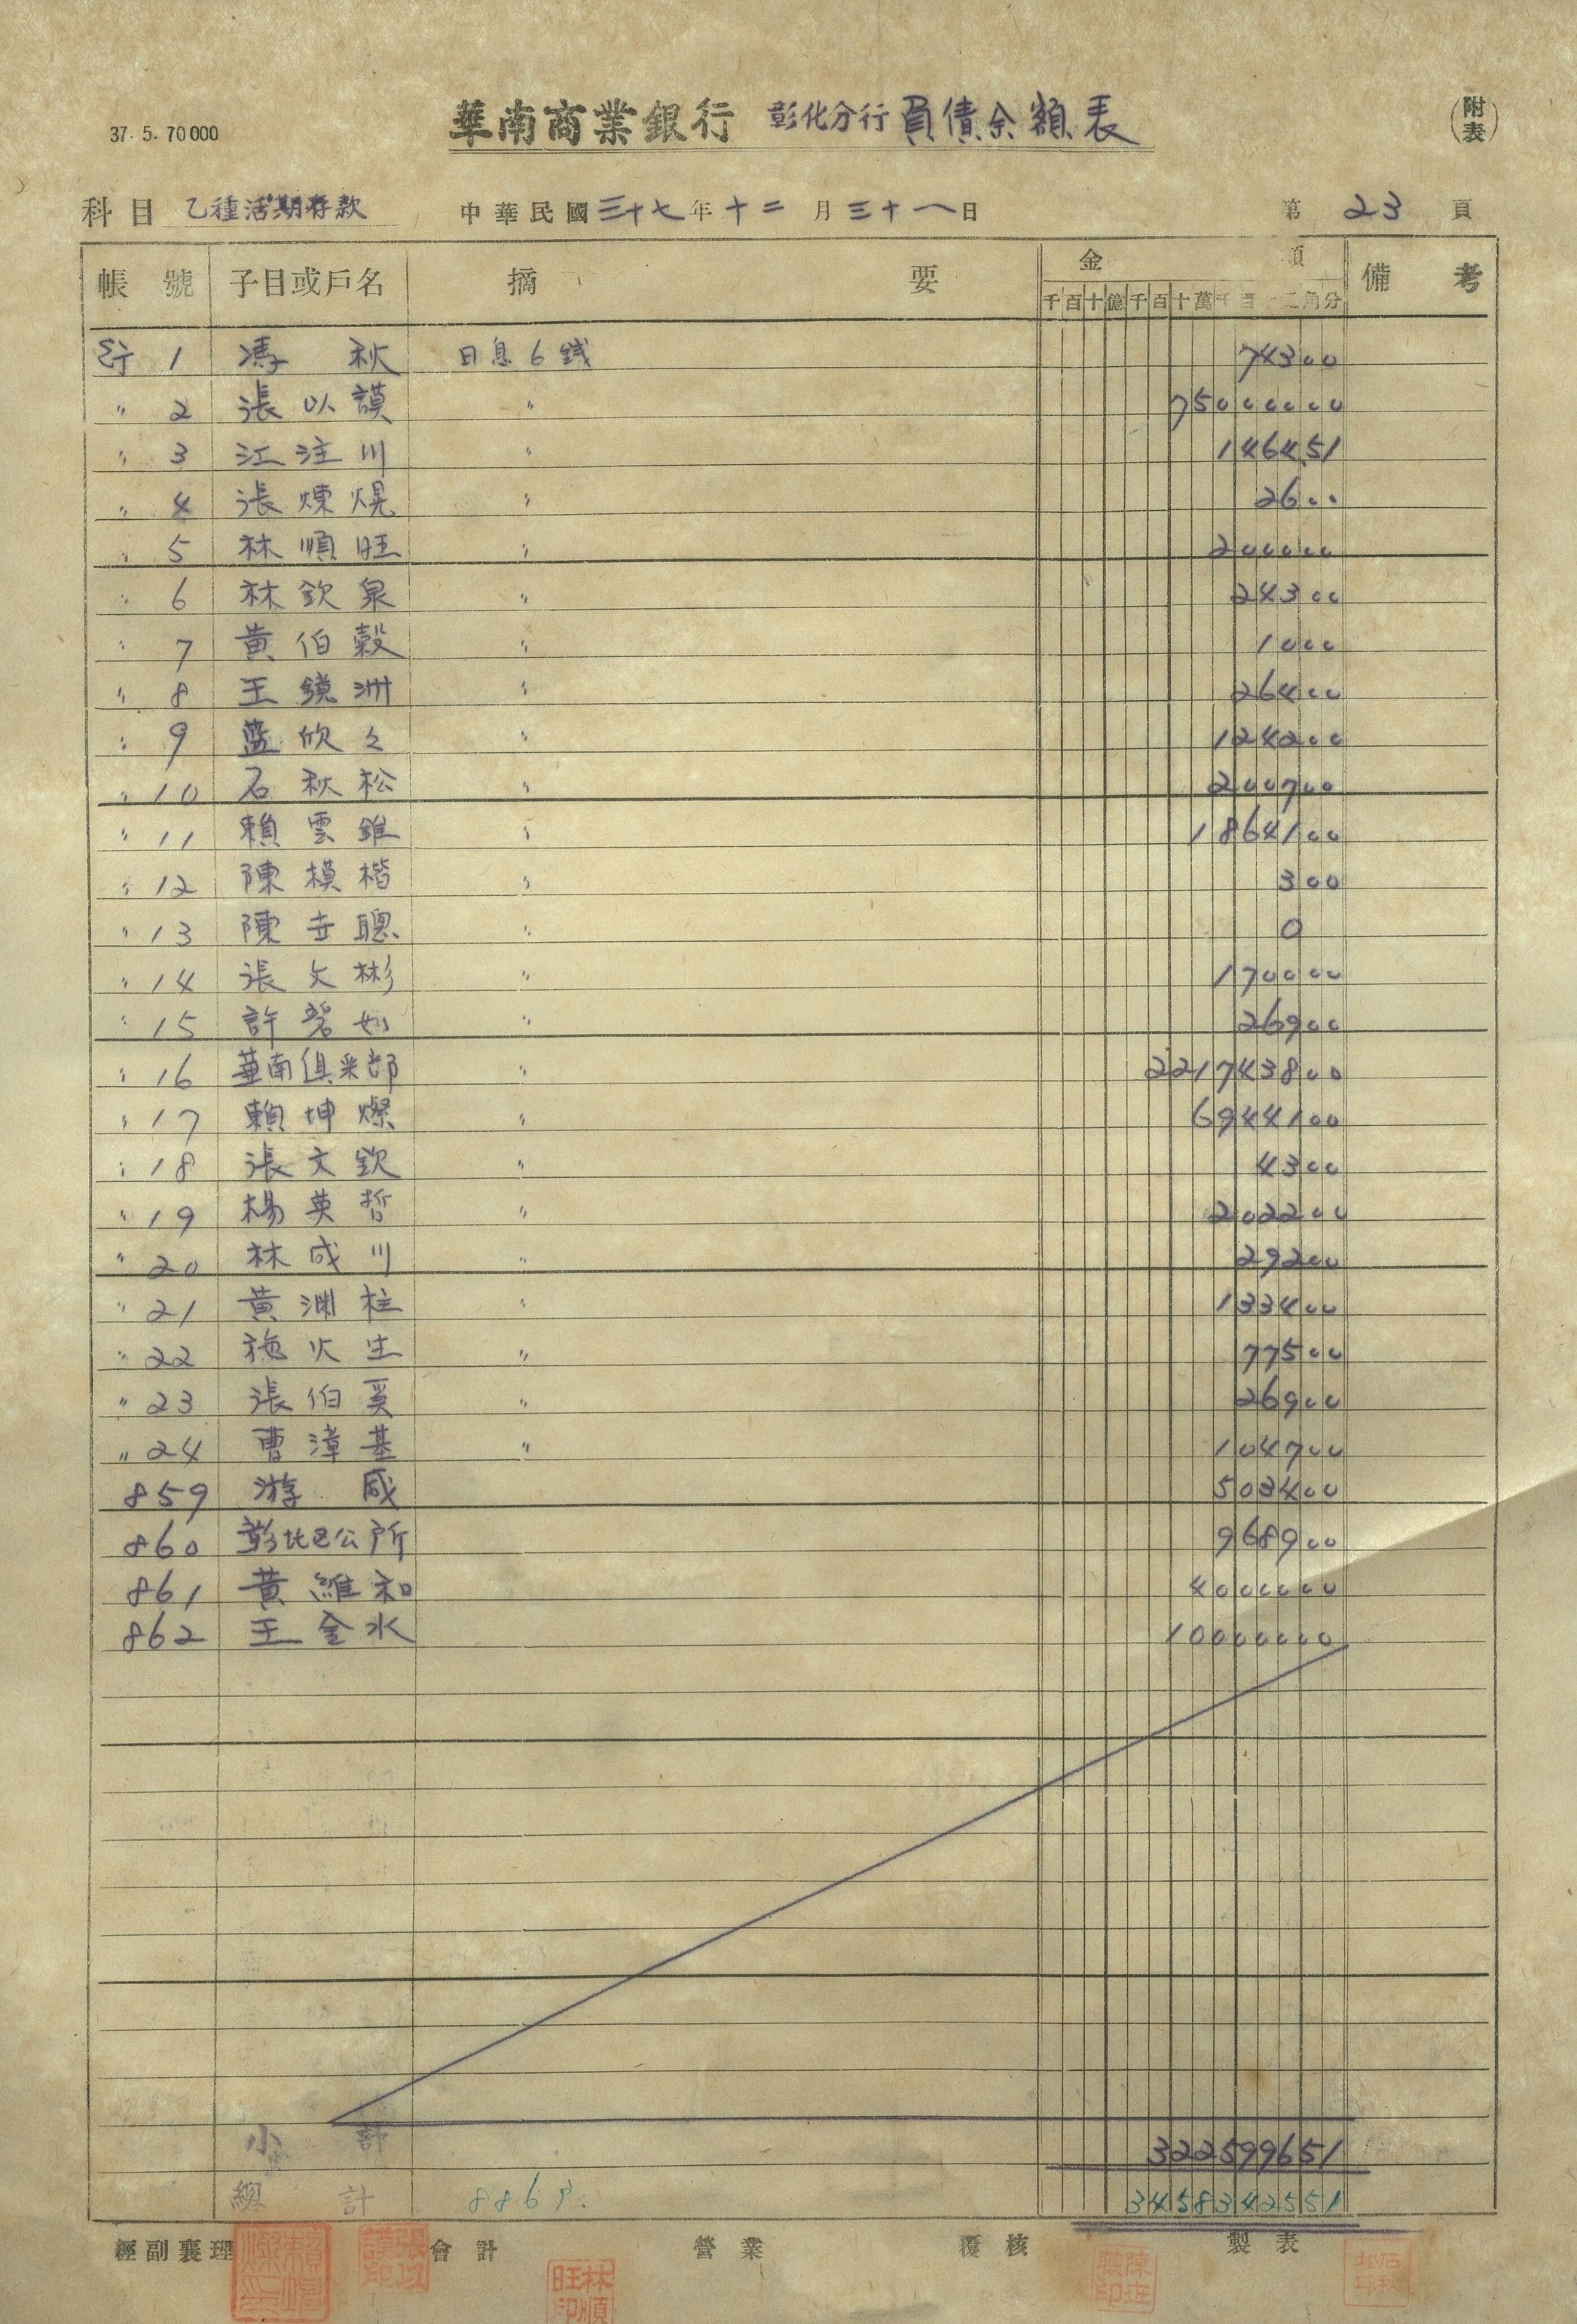 37. 5. 70000
華南商業銀行 彰化分行 負債余額表
(附表)
科目 乙種活期存款 中華民國三十七年十二月三十一日 第 23 頁
帳號 子目或戶名 摘要 金額 備考
千百十億千百十萬千百十元角分
行 1 馮秋 日息6錢 74300
〃 2 張以謨 〃 75000000
〃 3 江注川 〃 146451
〃 4 張煉焜 〃 2600
〃 5 林順旺 〃 200000
〃 6 林欽泉 〃 24300
〃 7 黃伯穀 〃 1000
〃 8 王鏡洲 〃 26400
〃 9 藍欣々 〃 124200
〃 10 石秋松 〃 200700
〃 11 賴雲錐 〃 1864100
〃 12 陳模楷 〃 300
〃 13 陳世聰 〃 0
〃 14 張文彬 〃 170000
〃 15 許碧如 〃 26900
〃 16 華南俱楽部 〃 221743800
〃 17 賴坤燦 〃 6944100
〃 18 張文欽 〃 4300
〃 19 楊英哲 〃 202200
〃 20 林成川 〃 29200
〃 21 黃渊柱 〃 133400
〃 22 施火生 〃 77500
〃 23 張伯奚 〃 26900
〃 24 曹漳基 〃 104700
859 游威 503400
860 彰化區公所 968900
861 黃維和 4000000
862 王金水 10000000
小計 322599651
總計 886戶. 3458342551
經副襄理 會計 營業 覆核 製表
林順旺印